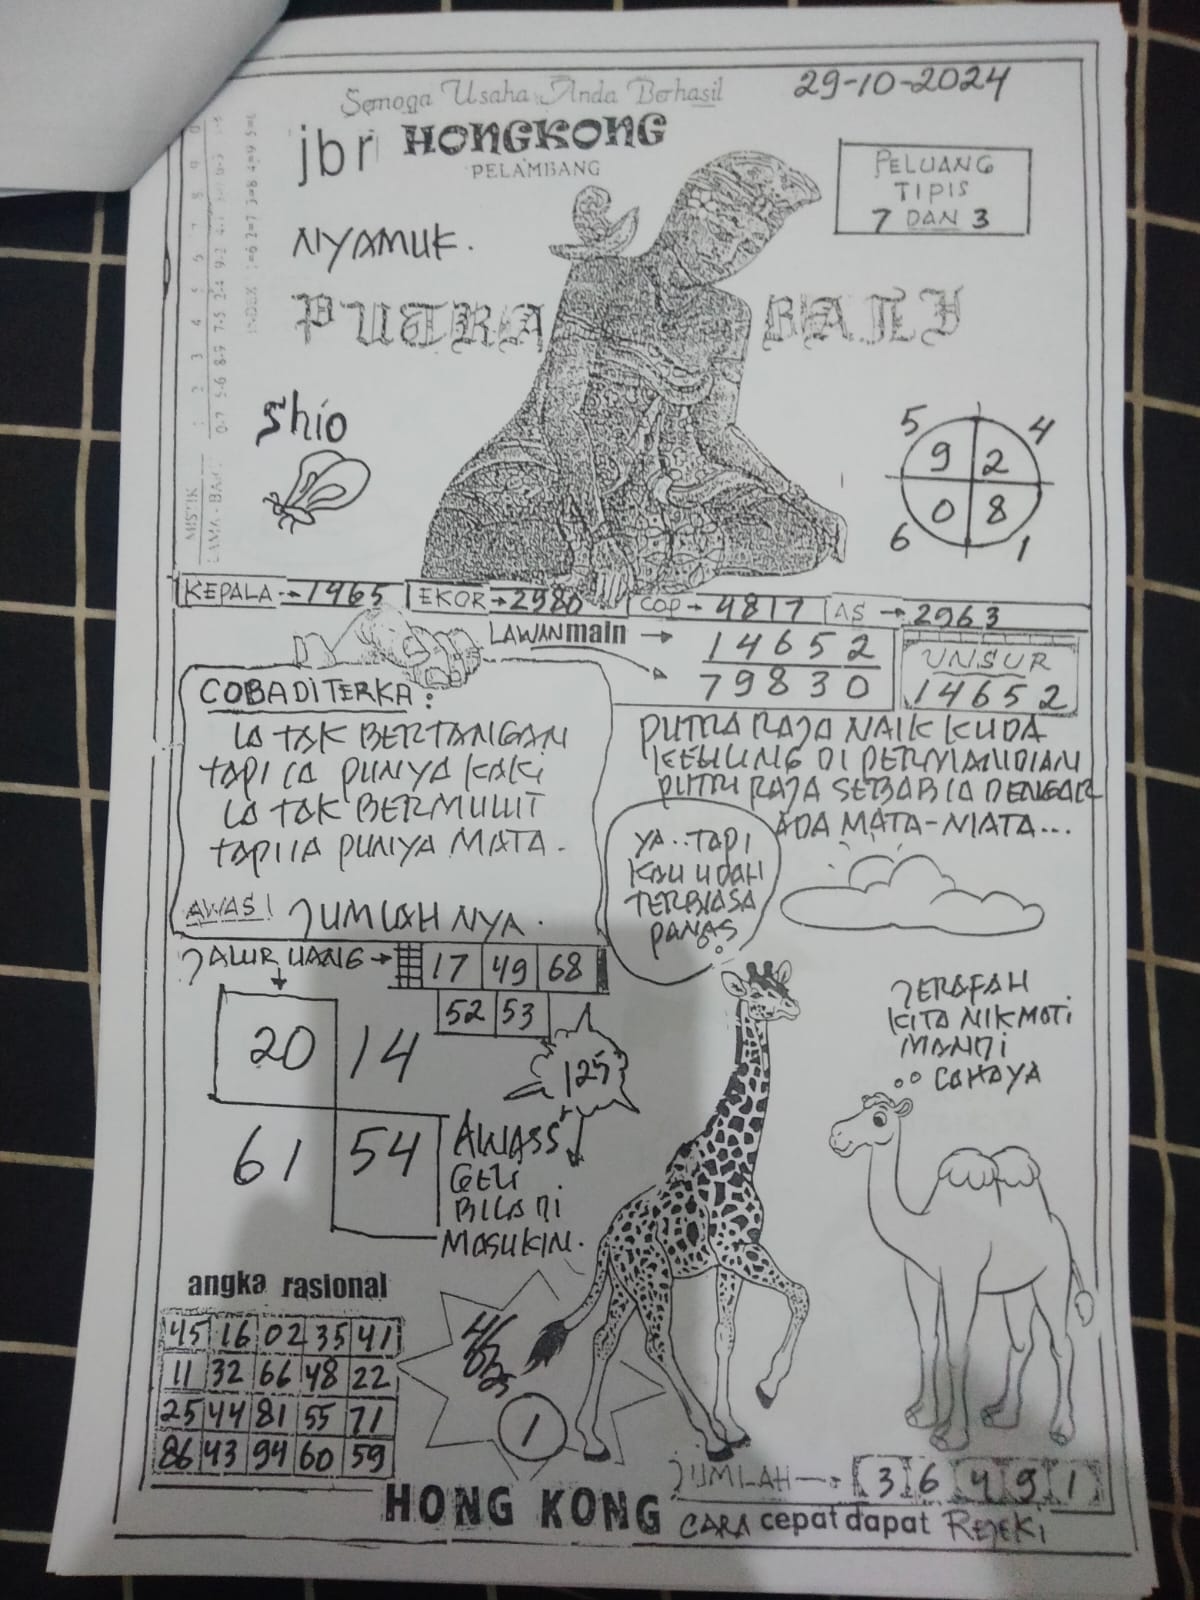 29-10-2024
Semoga Usaha Anda Berhasil
jbr HONGKONG
PELAMBANG
PELUANG
TIPIS
7 DAN 3
NYAMUK.
PUTRA BALI
MISTIK 1 2 3 4 5 6 7 8 9 0
INDEX 1=6 2=7 3=8 4=9 5=0
shio
5 4
9 2
0 8
6 1
KEPALA → 1465 EKOR → 2980 COP → 4817 AS → 2963
LAWAN main → 14652
79830
UNSUR
14652
COBA DITERKA :
IA TAK BERTANGAN
TAPI IA PUNYA KAKI
IA TAK BERMULUT
TAPI IA PUNYA MATA.
AWAS! JUMLAHNYA.
PUTRA RAJA NAIK KUDA
DI PERMANDIAN
PUTRI RAJA SEBAB IA DENGAR
ADA MATA-MATA...
YA.. TAPI
KAU UDAH
TERBIASA
PANAS
JALUR UANG → 17 49 68
52 53
20 14
61 54
125
AWASS
GELI
BILA DI
MASUKIN.
JERAFAH
KITA NIKMATI
MANDI
CAHAYA
angka rasional
45 16 02 35 41
11 32 66 48 22
25 44 81 55 71
86 43 94 60 59
1
JUMLAH → 3 6 4 9 1
HONG KONG CARA cepat dapat REJEKI